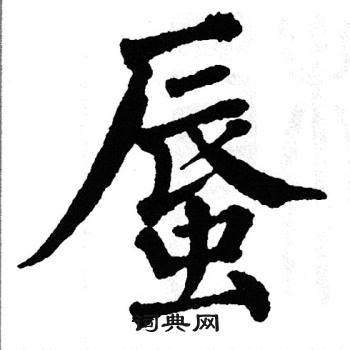 蜃
词典网